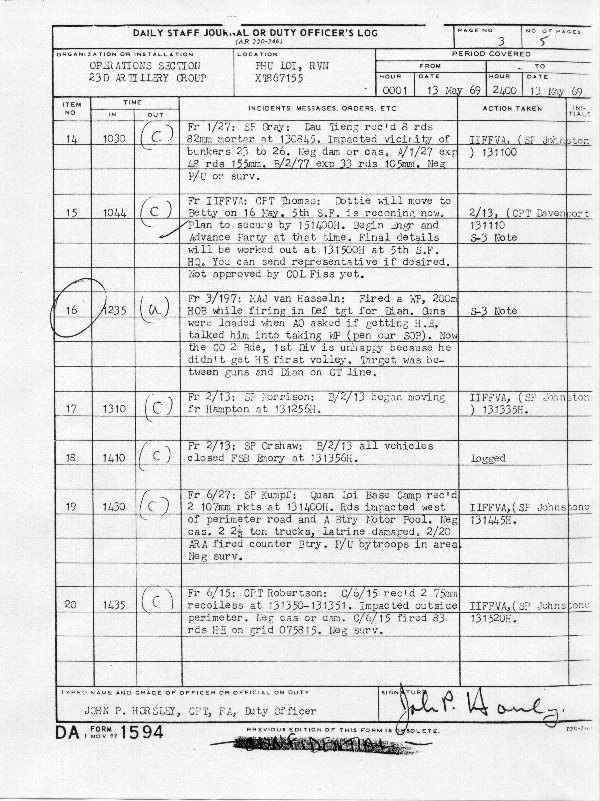 DAILY STAFF JOURNAL OR DUTY OFFICER'S LOG
(AR 220-346)
PAGE NO
3
NO OF PAGES
5
ORGANIZATION OR INSTALLATION
OPERATIONS SECTION
23D ARTILLERY GROUP
LOCATION
PHU LOI, RVN
XT867155
PERIOD COVERED
FROM
TO
HOUR
DATE
HOUR
DATE
0001
13 May 69
2400
13 May 69
ITEM NO
TIME
IN
OUT
INCIDENTS, MESSAGES, ORDERS, ETC
ACTION TAKEN
INI-
TIALS
14 1030 (C)
Fr 1/27: SP Gray: Dau Tieng rec'd 8 rds
82mm morter at 130845. Impacted vicinity of
bunkers 23 to 26. Neg dam or cas. A/1/27 exp
48 rds 155mm. B/2/77 exp 33 rds 105mm. Neg
P/U or surv.
IIFFVA, (SP Johnston
) 131100
15 1044 (C)
Fr IIFFVA: CPT Thomas: Dottie will move to
Betty on 16 May. 5th S.F. is reconing now.
Plan to secure by 151400H. Begin Engr and
Advance Party at that time. Final details
will be worked out at 131500H at 5th S.F.
HQ. You can send representative if desired.
Not approved by COL Fiss yet.
2/13, (CPT Davenport
131110
S-3 Note
16 1235 (a)
Fr 3/197: MAJ van Hasseln: Fired a WP, 200m
HOB while firing in Def tgt for Dian. Guns
were loaded when AO asked if getting H.E,
talked him into taking WP (pen our SOP). Now
the CO 2 Bde, 1st Div is unhappy because he
didn't get HE first volley. Target was be-
tween guns and Dian on GT line.
S-3 Note
17 1310 (C)
Fr 2/13: SP Morrison: B/2/13 began moving
fr Hampton at 131256H.
IIFFVA, (SP Johnston
) 131335H.
18 1410 (C)
Fr 2/13: SP Orshaw: B/2/13 all vehicles
closed FSB Emory at 131356H.
Logged
19 1430 (C)
Fr 6/27: SP Kumpf: Quan Loi Base Camp rec'd
2 107mm rkts at 131400H. Rds impacted west
of perimeter road and A Btry Motor Pool. Neg
cas. 2 2½ ton trucks, latrine damaged. 2/20
ARA fired counter Btry. P/U bytroops in area.
Neg surv.
IIFFVA,(SP Johnstone
131445H.
20 1435 (C)
Fr 6/15: CPT Robertson: C/6/15 rec'd 2 75mm
recoiless at 131350-131351. Impacted outside
perimeter. Neg cas or dam. C/6/15 fired 83
rds HE on grid 075815. Neg surv.
IIFFVA,(SP Johnstone
131520H.
TYPED NAME AND GRADE OF OFFICER OR OFFICIAL ON DUTY
JOHN P. HORSLEY, CPT, FA, Duty Officer
SIGNATURE
John P. Horsley
DA FORM 1594
1 NOV 62
PREVIOUS EDITION OF THIS FORM IS OBSOLETE.
CONFIDENTIAL